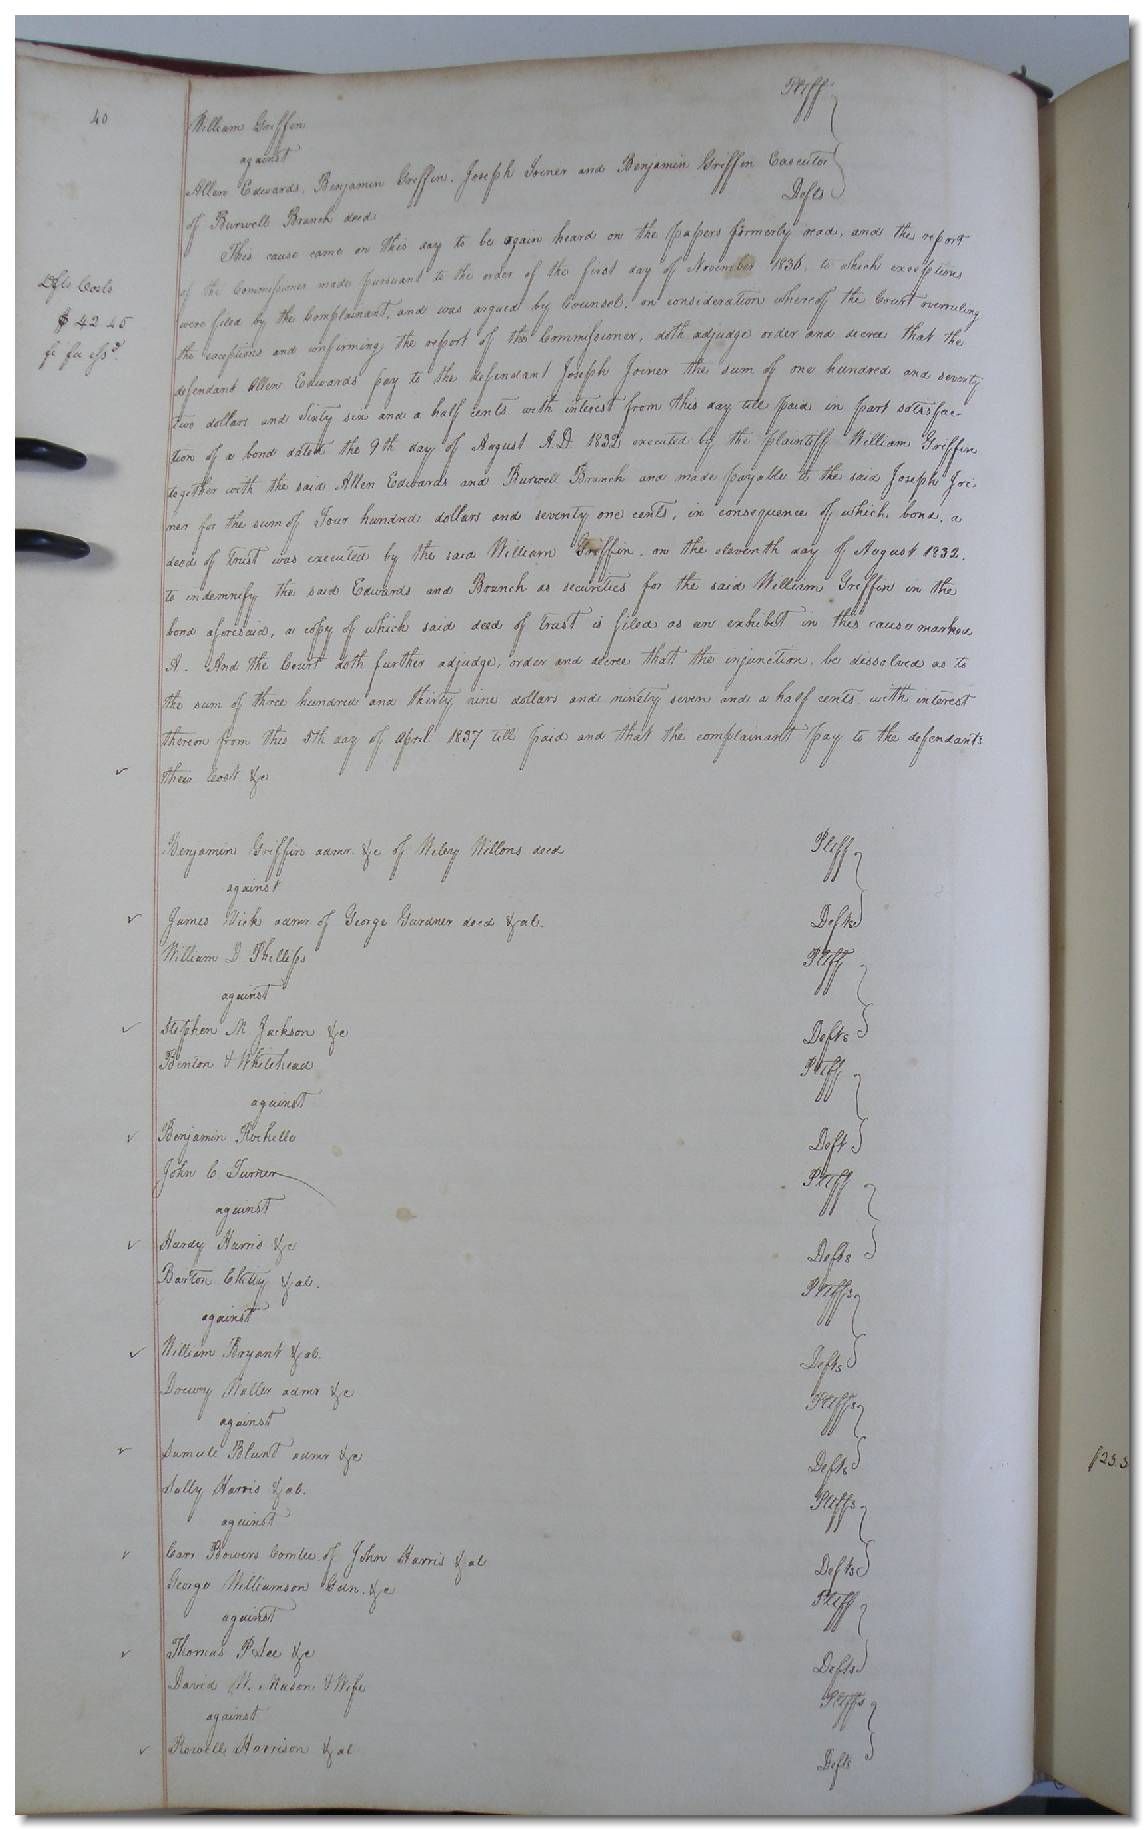 40
Pltff
William Griffin
against
Allen Edwards, Benjamin Griffin, Joseph Joiner and Benjamin Griffin Executor
of Burwell Branch decd
Defts
This cause came on this day to be again heard on the papers formerly read, and the report
of the Commissioner made pursuant to the order of the first day of November 1836, to which exceptions
were filed by the Complainant, and was argued by Counsel, on consideration whereof the Court overruling
the exceptions and confirming the report of the Commissioner, doth adjudge order and decree that the
defendant Allen Edwards pay to the defendant Joseph Joiner the sum of one hundred and seventy
two dollars and Sixty six and a half cents with interest from this day till paid in part satisfac-
tion of a bond dated the 9th day of August A.D. 1832 executed by the plaintiff William Griffin
together with the said Allen Edwards and Burwell Branch and made payable to the said Joseph Joi
ner for the sum of Four hundred dollars and seventy one cents, in consequence of which bond, a
deed of trust was executed by the said William Griffin, on the eleventh day of August 1832.
to indemnify the said Edwards and Branch as securities for the said William Griffin in the
bond aforesaid, a copy of which said deed of trust is filed as an exhibit in this cause marked
A. And the Court doth further adjudge, order and decree that the injunction, be dissolved as to
the sum of three hundred and thirty nine dollars and ninety seven and a half cents with interest
thereon from this 5th day of April 1837 till paid and that the complainant pay to the defendants
their Cost &c
Dfts Costs
$42.45
fi fa issd.
Benjamin Griffin admr. &c of Wiley Willons decd Pltff
against
James Wick admr of George Gardner decd & al. Defts
William D Phillips Pltff
against
Stephen M Jackson &c Defts
Benton & Whitehead Pltff
against
Benjamin Rochelle Deft
John C. Turner Pltff
against
Hardy Harris &c Defts
Barton Chitty & al. Pltffs
against
William Bryant & al. Defts
Drewry Waller admr &c Pltffs
against
Samuel Blunt admr &c Defts
Sally Harris & al. Pltffs
against
Carr Bowers Comtee of John Harris & al Defts
George Williamson Gdn. &c Pltff
against
Thomas P Lee &c Defts
David W. Mason & Wife Pltffs
against
Rowell Harrison & al Defts